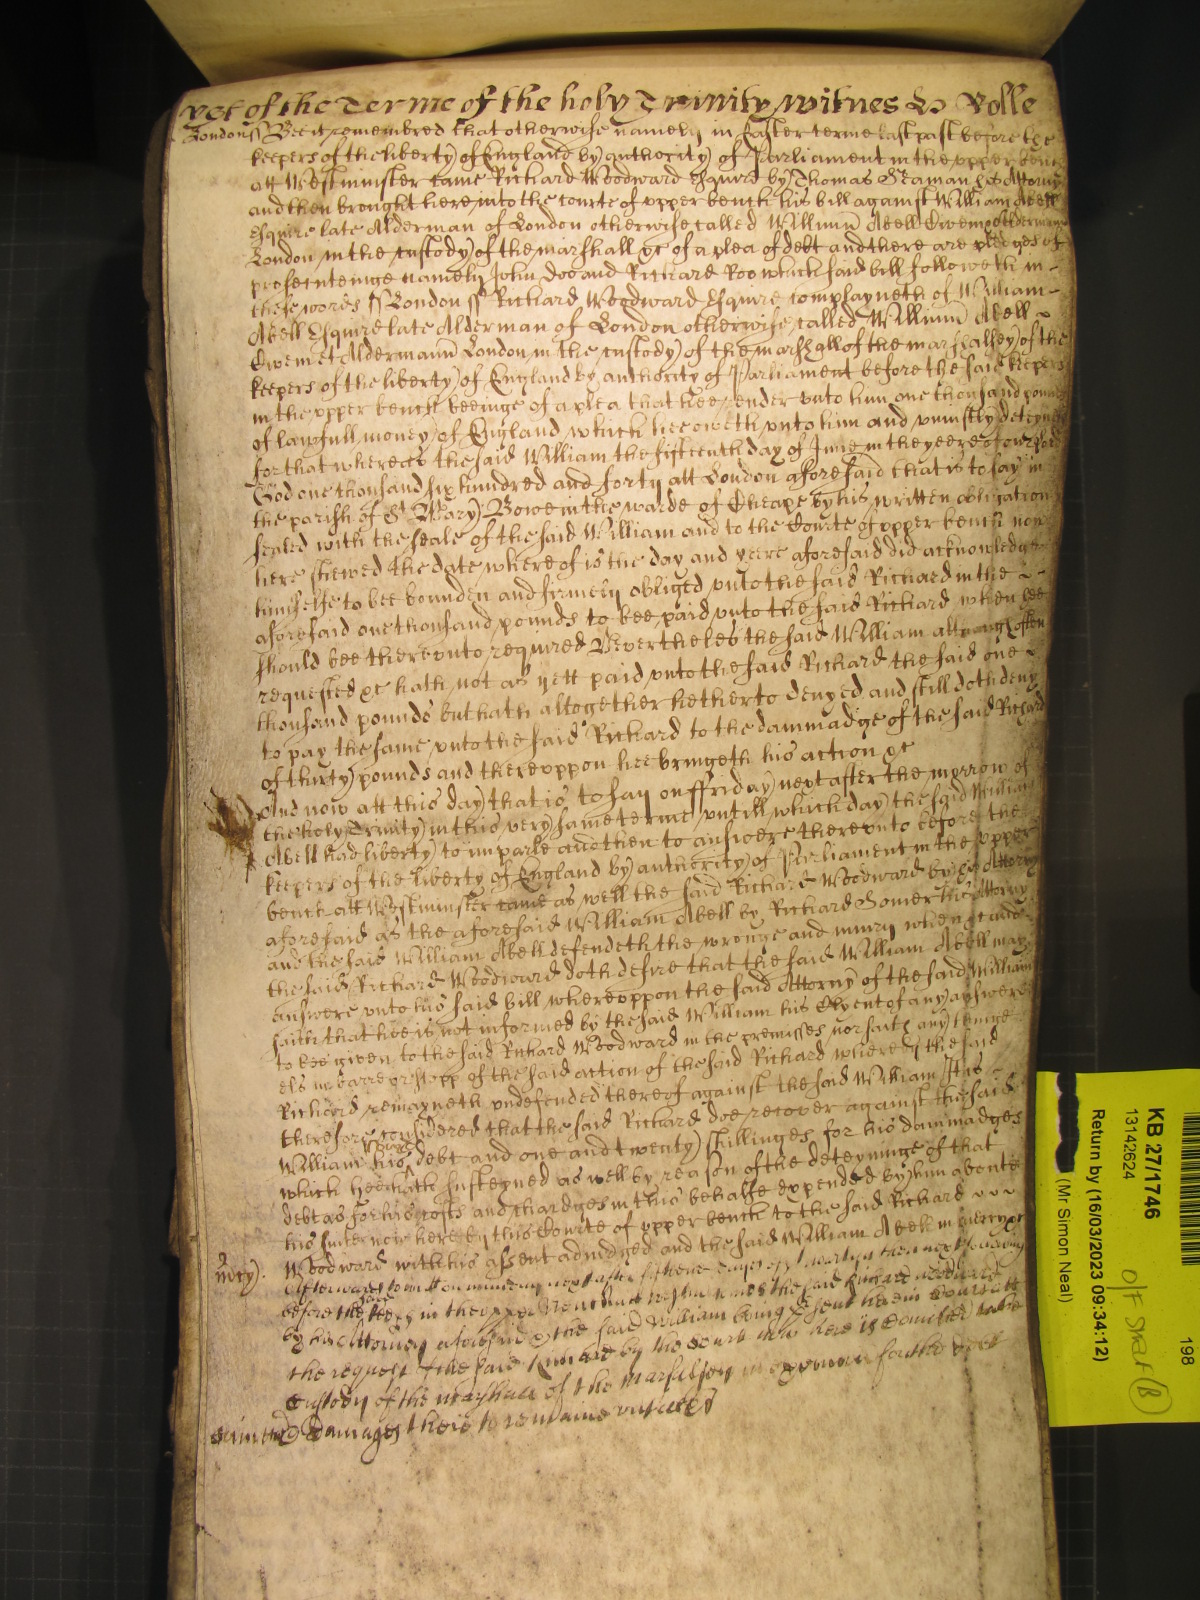 yet of the Terme of the holy Trinity witnes Rolle
London ss Bee it remembred that otherwise namely in Easter terme last past before the
keepers of the liberty of England by authority of Parliament in the upper bench
att Westminster came Richard Woodward Esquire by Thomas Seaman his Attorny
and then brought here into the courte of upper bench his bill against William Abell
Esquire late Alderman of London otherwise called William Abell Civem et Aldermann
London in the custody of the marshall &c of a plea of debt and there are pledges of
prosecuteinge namely John Doo and Richard Roo which said bill followeth in
these words ss London ss Richard Woodward Esquire complayneth of William
Abell Esquire late Alderman of London otherwise called William Abell
Civem et Aldermann London in the custody of the marshall of the marshalsey of the
keepers of the liberty of England by authority of Parliament before the said keepers
in the upper bench beeinge of a plea that hee render unto him one thousand pounds
of lawfull money of England which hee oweth unto him and uniustly deteyneth
for that whereas the said William the fifteenth day of June in the yeere of our Lord
God one thousand six hundred and forty att London aforesaid that is to say in
the parish of St Mary Bowe in the warde of Cheape by his written obligation
sealed with the seale of the said William and to the Courte of upper bench now
here shewed the date whereof is the day and yeere aforesaid did acknowledge
himselfe to bee bounden and firmely obliged unto the said Richard in the
aforesaid one thousand pounds to bee paid unto the said Richard when hee
should bee thereunto required Neverthelesse the said William although often
requested &c hath not as yett paid unto the said Richard the said one
thousand pounds but hath altogether hetherto denyed and still doth deny
to pay the same unto the said Richard to the dammadge of the said Richard
of thirty pounds and thereuppon hee bringeth his action &c
And now att this day that is to say on ffriday next after the morrow of
the holy Trinity in this very same terme untill which day the said William
Abell had liberty to imparle and then to answere thereunto before the
keepers of the liberty of England by authority of Parliament in the upper
bench att Westminster came as well the said Richard Woodward by his Attorny
aforesaid as the aforesaid William Abell by Richard Somer his Attorny
and the said William Abell defendeth the wronge and iniury when &c and
the said Richard Woodward doth desire that the said William Abell may
answere unto his said bill whereuppon the said Attorny of the said William
saith that hee is not informed by the said William his Clyent of any answere
to bee given to the said Richard Woodward in the premisses nor saith any thinge
els in barre or stopp of the said action of the said Richard whereby the said
Richard remayneth undefended thereof against the said William It is
therefore considered that the said Richard doe recover against the said
William his debt and one and twenty shillinges for his dammadges
which hee hath susteyned as well by reason of the deteyninge of that
debt as for his costs and chardges in this behalfe expended by him aboute
his suite now here by this Courte of upper bench to the said Richard
Woodward with his assent adiudged and the said William Abell in mercy &c
mcy
Afterwards to witt on munday next after fifteene dayes of St martyn then next following
before the said keep in the upper Bench att Westm comes the said Richard Woodward
by his Attorney aforesaid & the said William being present here in Court att
the request of the said Richard by the Court now here is Comitted to the
Custody of the marshall of the marshalsey in execucon for the debt
and Damages there to remaine untill &c
KB 27/1746
13142624
Return by (16/03/2023 09:34:12)
(Mr Simon Neal)
198
B